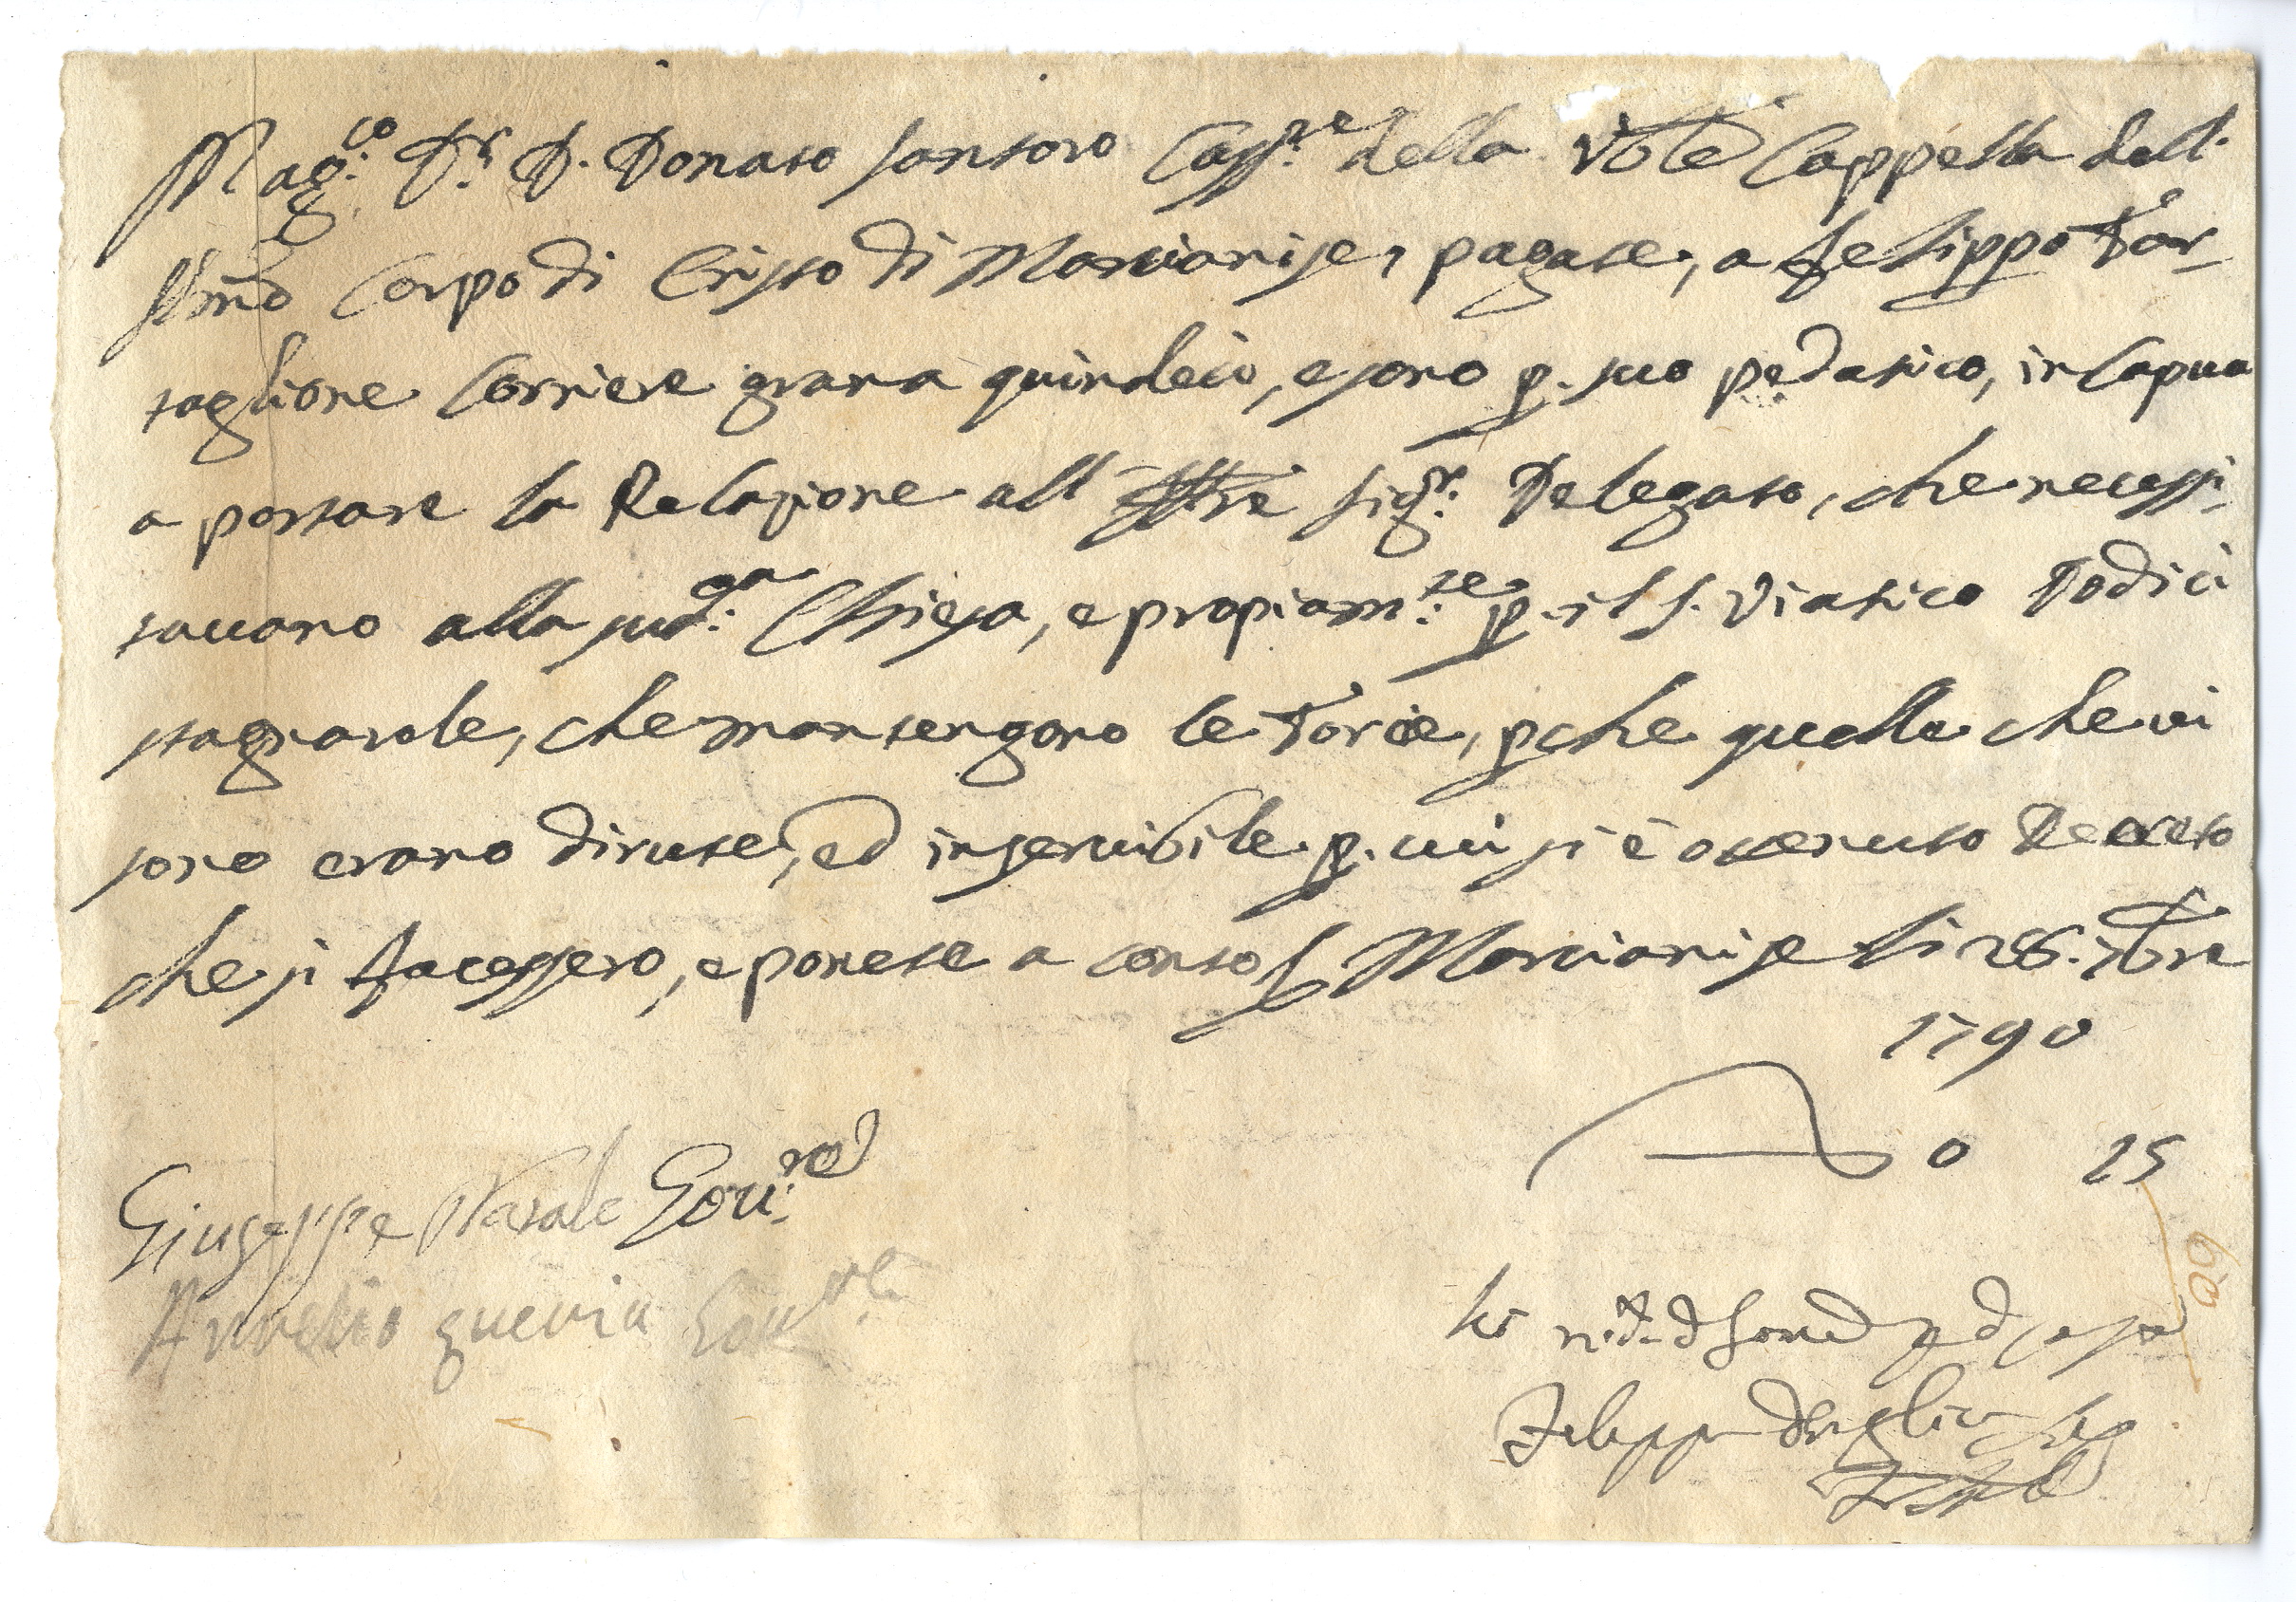 Mag.co D.r D. Donato Santoro Cass.re della Vble Cappella dell.
SSmo Corpo di Cristo di Marcianise, pagate, a Felippo Tar-
taglione Corriere grana quindeci, e sono p. suo pedatico, in Capua
a portare la Relazione all' Illtre Sig.r Delegato, che necessi-
tavano alla sud.a Chiesa, e propiam.te p. il S. Viatico Dodici
stagnarole, che mantengono le Torcie, pche quelle che vi
sono erano dirute, ed inservibile p. cui si è ottenuto Decreto
che si facessero, e ponete a conto Marcianise li 28. 7bre
1790
0 15
Giuseppe Gov.re
Aurelio Gov.re
60